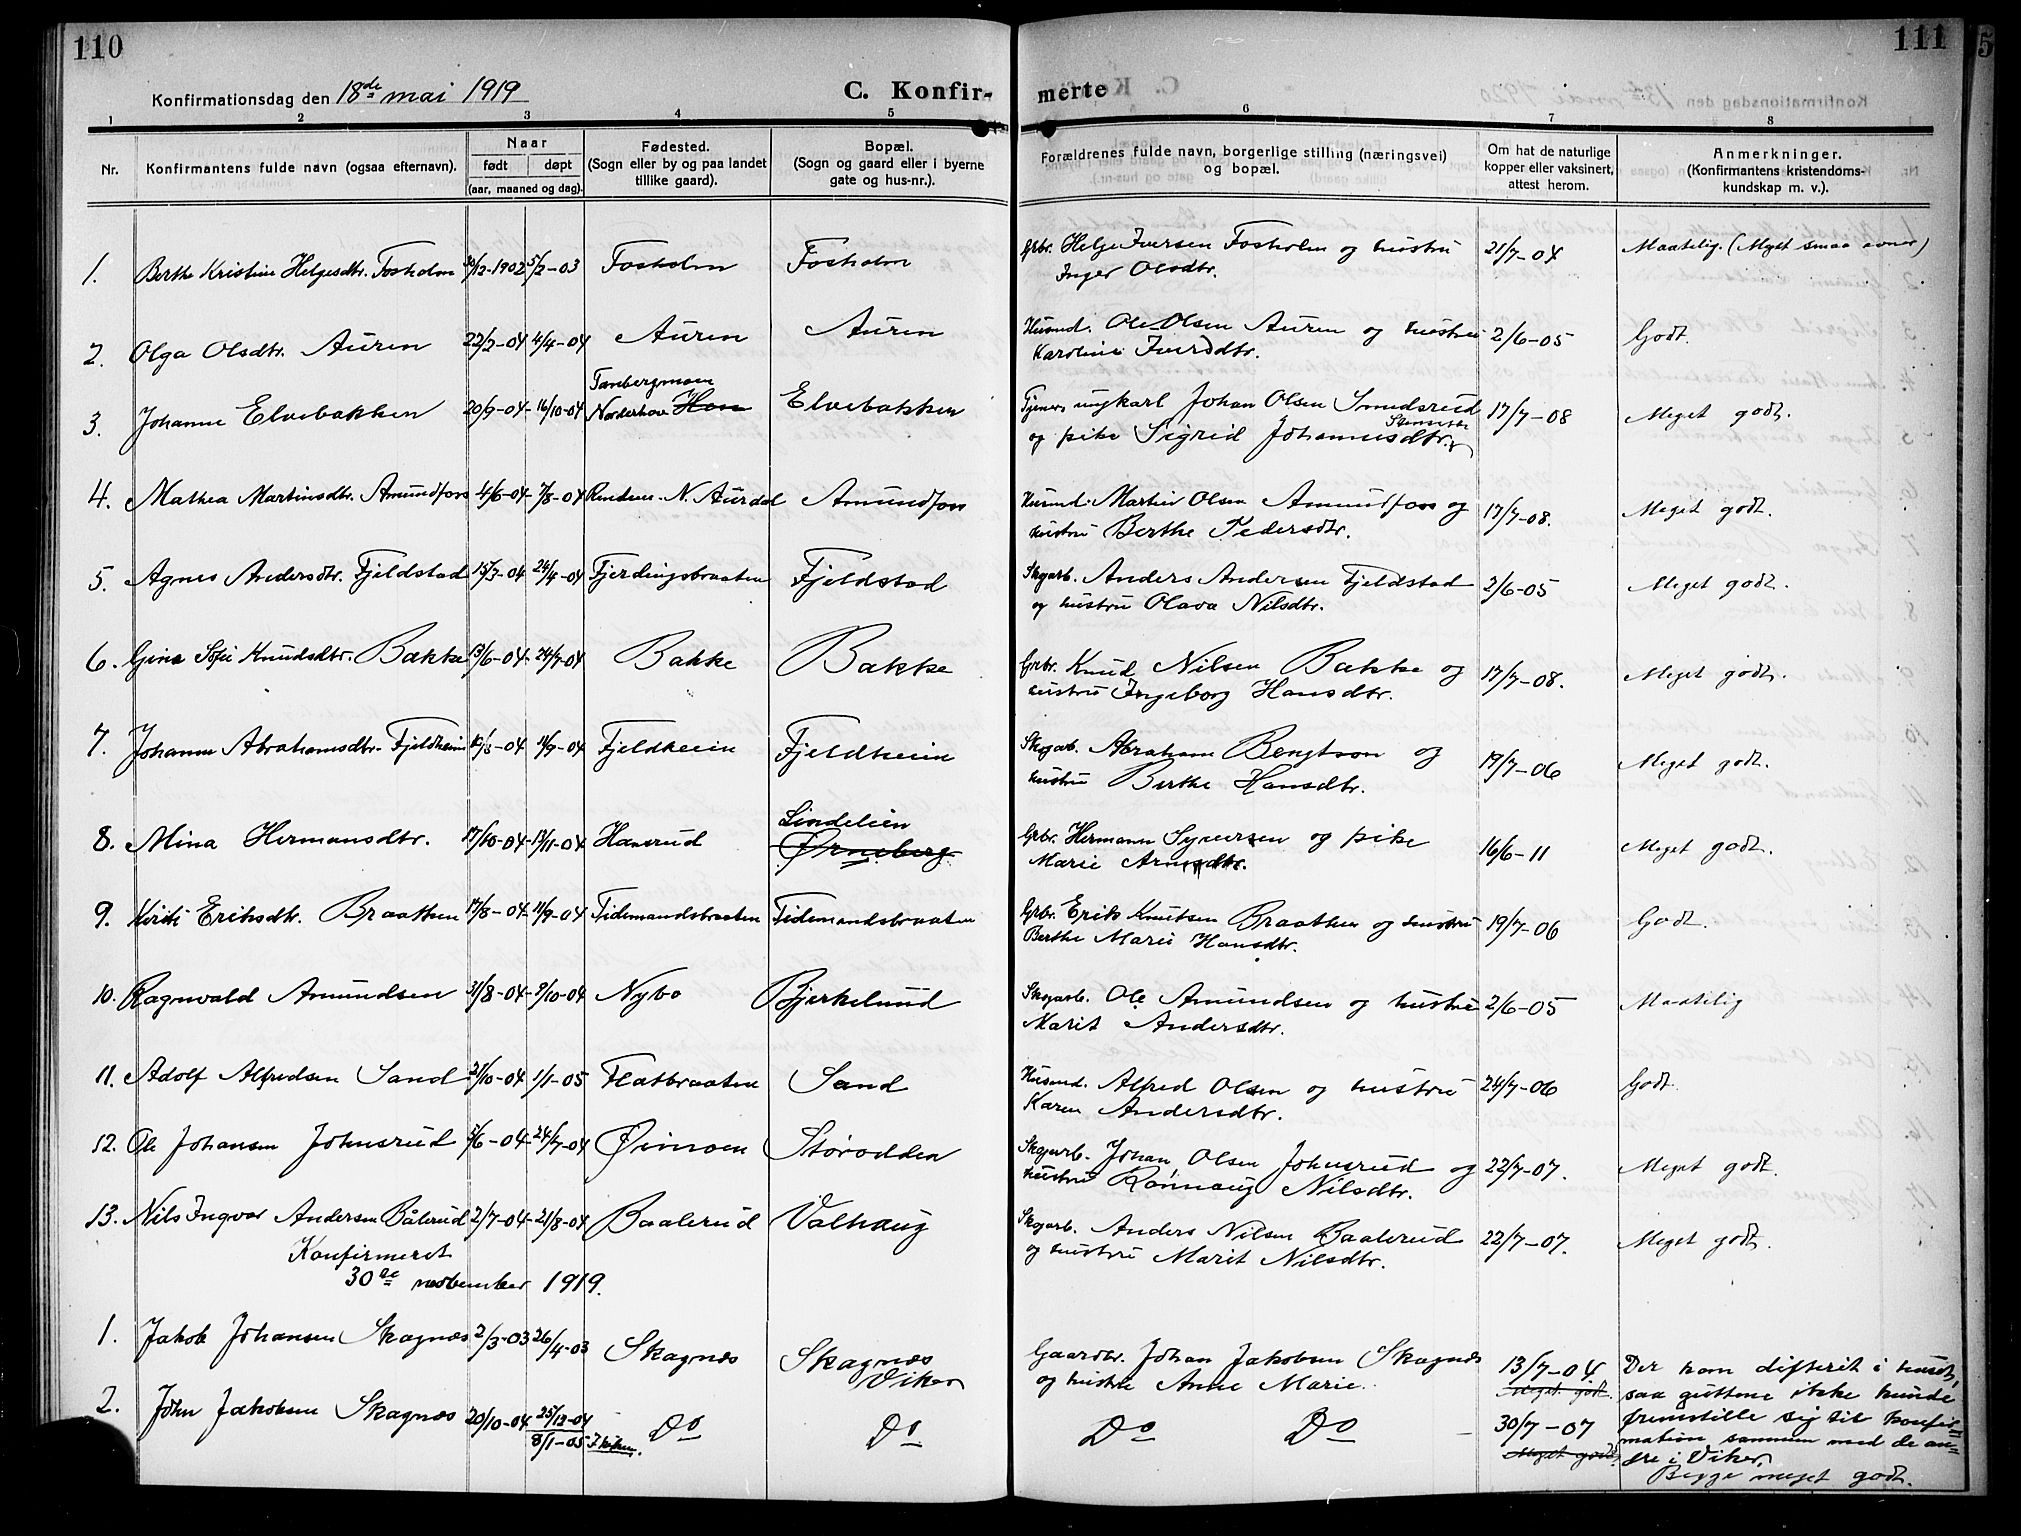 110
111
Konfirmationsdag den 18de mai 1919
C. Konfir- merte
1 2 3 4 5 6 7 8
Nr. Konfirmantens fulde navn (ogsaa efternavn). Naar født døpt (aar, maaned og dag). Fødested. (Sogn eller by og paa landet tillike gaard). Bopæl. (Sogn og gaard eller i byerne gate og hus-nr.). Forældrenes fulde navn, borgerlige stilling (næringsvei) og bopæl. Om hat de naturlige kopper eller vaksinert, attest herom. Anmerkninger. (Konfirmantens kristendoms- kundskap m. v.).
1. Berthe Kristine Helgesdtr. Fosholm 30/12-1902 5/2-03 Fosholm Fosholm Grbr. Helge Iversen Fosholm og hustru 21/7-04 Maatelig. (Myet smaa evner)
Inger Olsdtr.
2. Olga Olsdtr. Auren 22/2-04 4/4-04 Auren Auren Husmd. Ole Olsen Auren og hustru 2/6-05 Godt.
Karoline Iversdtr.
3. Johanne Elvebakken 20/9-04 16/10-04 Tanbergmoen Norderhov Hon Elvebakken Tjener, ungkarl Johan Olsen Smedsrud 17/7-08 Meget godt.
og pike Sigrid Johannesdtr.
4. Mathea Martinsdtr. Amundfoss 4/6-04 7/8-04 N. Aurdal Amundfoss Husmd. Martin Olsen Amundfoss og 17/7-08. Meget godt.
hustru Berthe Pedersdtr.
5. Agnes Andersdtr. Fjeldstad 15/3-04 24/4-04 Fjerdingsbraaten Fjeldstad Skogarb. Anders Andersen Fjeldstad 2/6-05 Meget godt.
og hustru Olava Nilsdtr.
6. Gina Sofie Knudsdtr. Bakke 13/6-04 24/7-04 Bakke Bakke Grbr. Knud Nilsen Bakke og 17/7-08. Meget godt.
hustru Ingeborg Hansdtr.
7. Johanne Abrahamsdtr. Fjeldheim 11/9-04 Fjeldheim Fjeldheim Skogarb. Abraham Bengtson og 19/7-06 Meget godt.
hustru Berthe Hansdtr.
8. Mina Hermansdtr. 17/10-04 13/11-04 Hansrud Lindelien Ørneberg Grbr. Hermann Syversen og pike 16/6-11 Meget godt.
Marie
9. Kirsti Eriksdtr. Braathen 17/8-04 11/9-04 Tidemandsbraaten Tidemandsbraaten Grbr. Erik Knutsen Braathen og hustru 19/7-06 Godt.
Berthe Marie Hansdtr.
10. Ragnvald Amundsen 31/8-04 9/10-04 Nybo Bjerkelund Skogarb. Ole Amundsen og hustru 2/6-05 Maatelig
Marit Andersdtr.
11. Adolf Alfredsen Sand 21/10-04 1/1-05 Flatbraaten Sand Husmd. Alfred Olsen og hustru 24/7-06 Godt
Karen Andersdtr.
12. Ole Johansen Johnsrud 5/6-04 24/7-04 Øimoen Storodden Skogarb. Johan Olsen Johnsrud og 22/7-07. Meget godt.
hustru Rønnaug Nilsdtr.
13. Nils Ingvar Andersen Bålerud 2/7-04 21/8-04 Baalerud Valhaug Skogarb. Anders Nilsen Baalerud 22/7-07. Meget godt.
og hustru Marit Nilsdtr.
Konfirmeret
30de november 1919.
1. Jakob Johansen Skagnæs 2/3-03 26/4-03 Skagnæs Skagnæs Viker Gaardbr. Johan Jakobsen Skagnæs 13/7-04. Der kom difterit i huset,
og hustru Anne Marie. Meget godt. saa guttene ikke kunde
2. John Jakobsen Skagnæs 20/10-04 25/12-04 Do Do Do Do 30/7-07 fremstille sig til konfir-
8/1-05 I kirken. mation sammen med de an-
Meget godt. dre i Viker.
Begge meget godt.